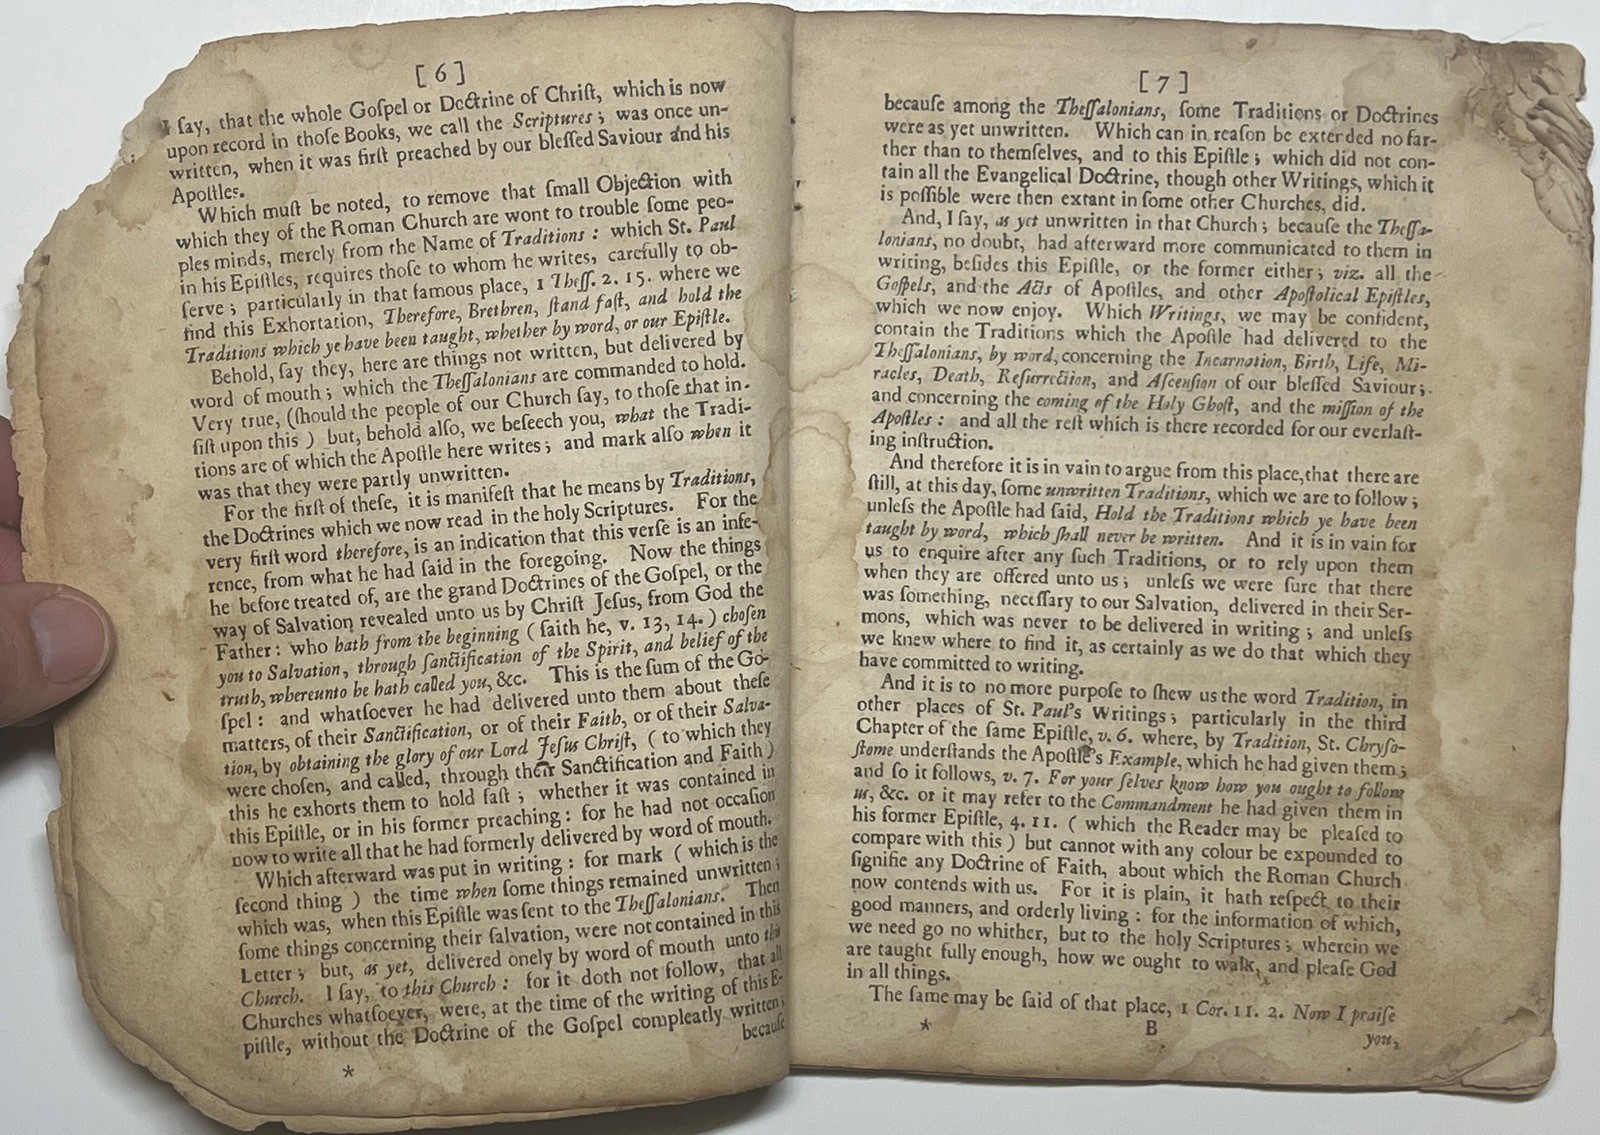 [ 6 ]
I ſay, that the whole Goſpel or Doctrine of Chriſt, which is now
upon record in thoſe Books, we call the Scriptures; was once un-
written, when it was firſt preached by our bleſſed Saviour and his
Apoſtles.
Which muſt be noted, to remove that ſmall Objection with
which they of the Roman Church are wont to trouble ſome peo-
ples minds, merely from the Name of Traditions: which St. Paul
in his Epiſtles, requires thoſe to whom he writes, carefully to ob-
ſerve; particularly in that famous place, 1 Theſſ. 2. 15. where we
find this Exhortation, Therefore, Brethren, ſtand faſt, and hold the
Traditions which ye have been taught, whether by word, or our Epiſtle.
Behold, ſay they, here are things not written, but delivered by
word of mouth; which the Theſſalonians are commanded to hold.
Very true, (ſhould the people of our Church ſay, to thoſe that in-
ſiſt upon this ) but, behold alſo, we beſeech you, what the Tradi-
tions are of which the Apoſtle here writes; and mark alſo when it
was that they were partly unwritten.
For the firſt of theſe, it is manifeſt that he means by Traditions,
the Doctrines which we now read in the holy Scriptures. For the
very firſt word therefore, is an indication that this verſe is an infe-
rence, from what he had ſaid in the foregoing. Now the things
he before treated of, are the grand Doctrines of the Goſpel, or the
way of Salvation revealed unto us by Chriſt Jeſus, from God the
Father: who hath from the beginning ( ſaith he, v. 13, 14. ) choſen
you to Salvation, through ſanctification of the Spirit, and belief of the
truth, whereunto he hath called you, &c. This is the ſum of the Go-
ſpel: and whatſoever he had delivered unto them about theſe
matters, of their Sanctification, or of their Faith, or of their Salva-
tion, by obtaining the glory of our Lord Jeſus Chriſt, ( to which they
were choſen, and called, through their Sanctification and Faith )
this he exhorts them to hold faſt; whether it was contained in
this Epiſtle, or in his former preaching: for he had not occaſion
now to write all that he had formerly delivered by word of mouth.
Which afterward was put in writing: for mark ( which is the
ſecond thing ) the time when ſome things remained unwritten;
which was, when this Epiſtle was ſent to the Theſſalonians. Then
ſome things concerning their ſalvation, were not contained in this
Letter; but, as yet, delivered onely by word of mouth unto this
Church. I ſay, to this Church: for it doth not follow, that all
Churches whatſoever, were, at the time of the writing of this E-
piſtle, without the Doctrine of the Goſpel compleatly written;
becauſe
*
[ 7 ]
becauſe among the Theſſalonians, ſome Traditions or Doctrines
were as yet unwritten. Which can in reaſon be extended no far-
ther than to themſelves, and to this Epiſtle; which did not con-
tain all the Evangelical Doctrine, though other Writings, which it
is poſſible were then extant in ſome other Churches, did.
And, I ſay, as yet unwritten in that Church; becauſe the Theſſa-
lonians, no doubt, had afterward more communicated to them in
writing, beſides this Epiſtle, or the former either; viz. all the
Goſpels, and the Acts of Apoſtles, and other Apoſtolical Epiſtles,
which we now enjoy. Which Writings, we may be confident,
contain the Traditions which the Apoſtle had delivered to the
Theſſalonians, by word, concerning the Incarnation, Birth, Life, Mi-
racles, Death, Reſurrection, and Aſcenſion of our bleſſed Saviour;
and concerning the coming of the Holy Ghoſt, and the miſſion of the
Apoſtles: and all the reſt which is there recorded for our everlaſt-
ing inſtruction.
And therefore it is in vain to argue from this place, that there are
ſtill, at this day, ſome unwritten Traditions, which we are to follow;
unleſs the Apoſtle had ſaid, Hold the Traditions which ye have been
taught by word, which ſhall never be written. And it is in vain for
us to enquire after any ſuch Traditions, or to rely upon them
when they are offered unto us; unleſs we were ſure that there
was ſomething, neceſſary to our Salvation, delivered in their Ser-
mons, which was never to be delivered in writing; and unleſs
we knew where to find it, as certainly as we do that which they
have committed to writing.
And it is to no more purpoſe to ſhew us the word Tradition, in
other places of St. Paul's Writings; particularly in the third
Chapter of the ſame Epiſtle, v. 6. where, by Tradition, St. Chryſo-
ſtome underſtands the Apoſtle's Example, which he had given them;
and ſo it follows, v. 7. For your ſelves know how you ought to follow
us, &c. or it may refer to the Commandment he had given them in
his former Epiſtle, 4. 11. ( which the Reader may be pleaſed to
compare with this ) but cannot with any colour be expounded to
ſignifie any Doctrine of Faith, about which the Roman Church
now contends with us. For it is plain, it hath reſpect to their
good manners, and orderly living: for the information of which,
we need go no whither, but to the holy Scriptures; wherein we
are taught fully enough, how we ought to walk, and pleaſe God
in all things.
The ſame may be ſaid of that place, 1 Cor. 11. 2. Now I praiſe
* B
you,